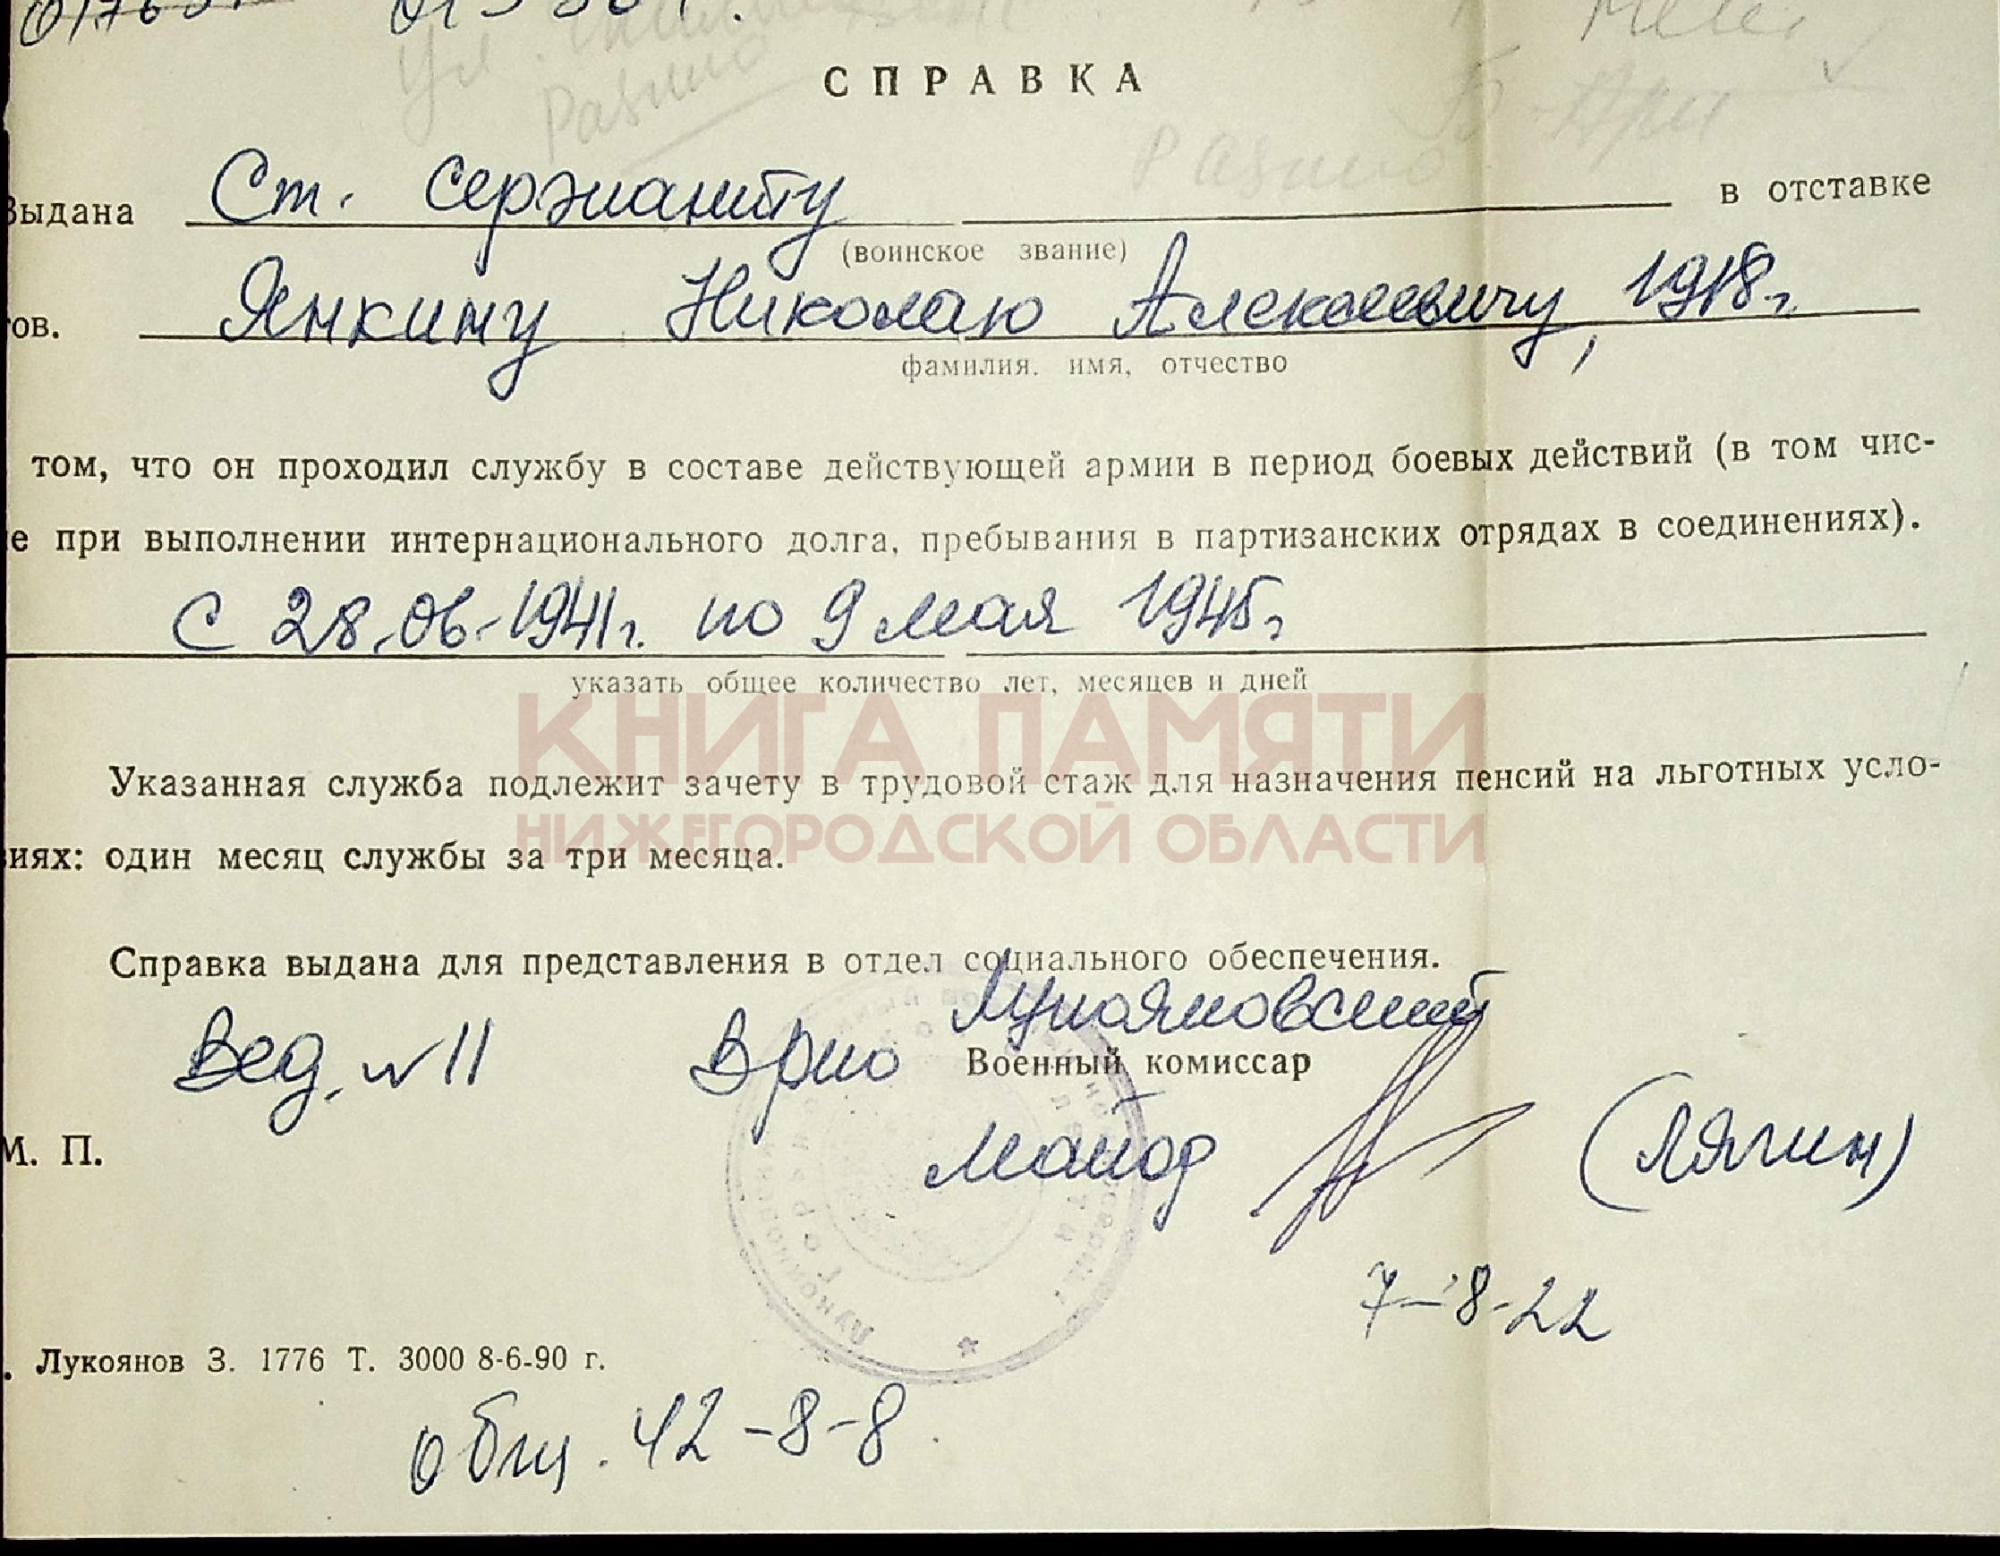 СПРАВКА
Выдана Ст. сержанту в отставке
(воинское звание)
тов. Янкину Николаю Алексеевичу, 1918г.
фамилия. имя, отчество
том, что он проходил службу в составе действующей армии в период боевых действий (в том чис-
е при выполнении интернационального долга, пребывания в партизанских отрядах в соединениях).
С 28.06.1941г. по 9 мая 1945г
указать общее количество лет, месяцев и дней
КНИГА ПАМЯТИ
Указанная служба подлежит зачету в трудовой стаж для назначения пенсий на льготных усло-
виях: один месяц службы за три месяца.
НИЖЕГОРОДСКОЙ ОБЛАСТИ
Справка выдана для представления в отдел социального обеспечения.
Лукояновский
Вед. №11 Врио Военный комиссар
М. П. майор (Лягин)
7-8-22
. Лукоянов З. 1776 Т. 3000 8-6-90 г.
общ. 42-8-8